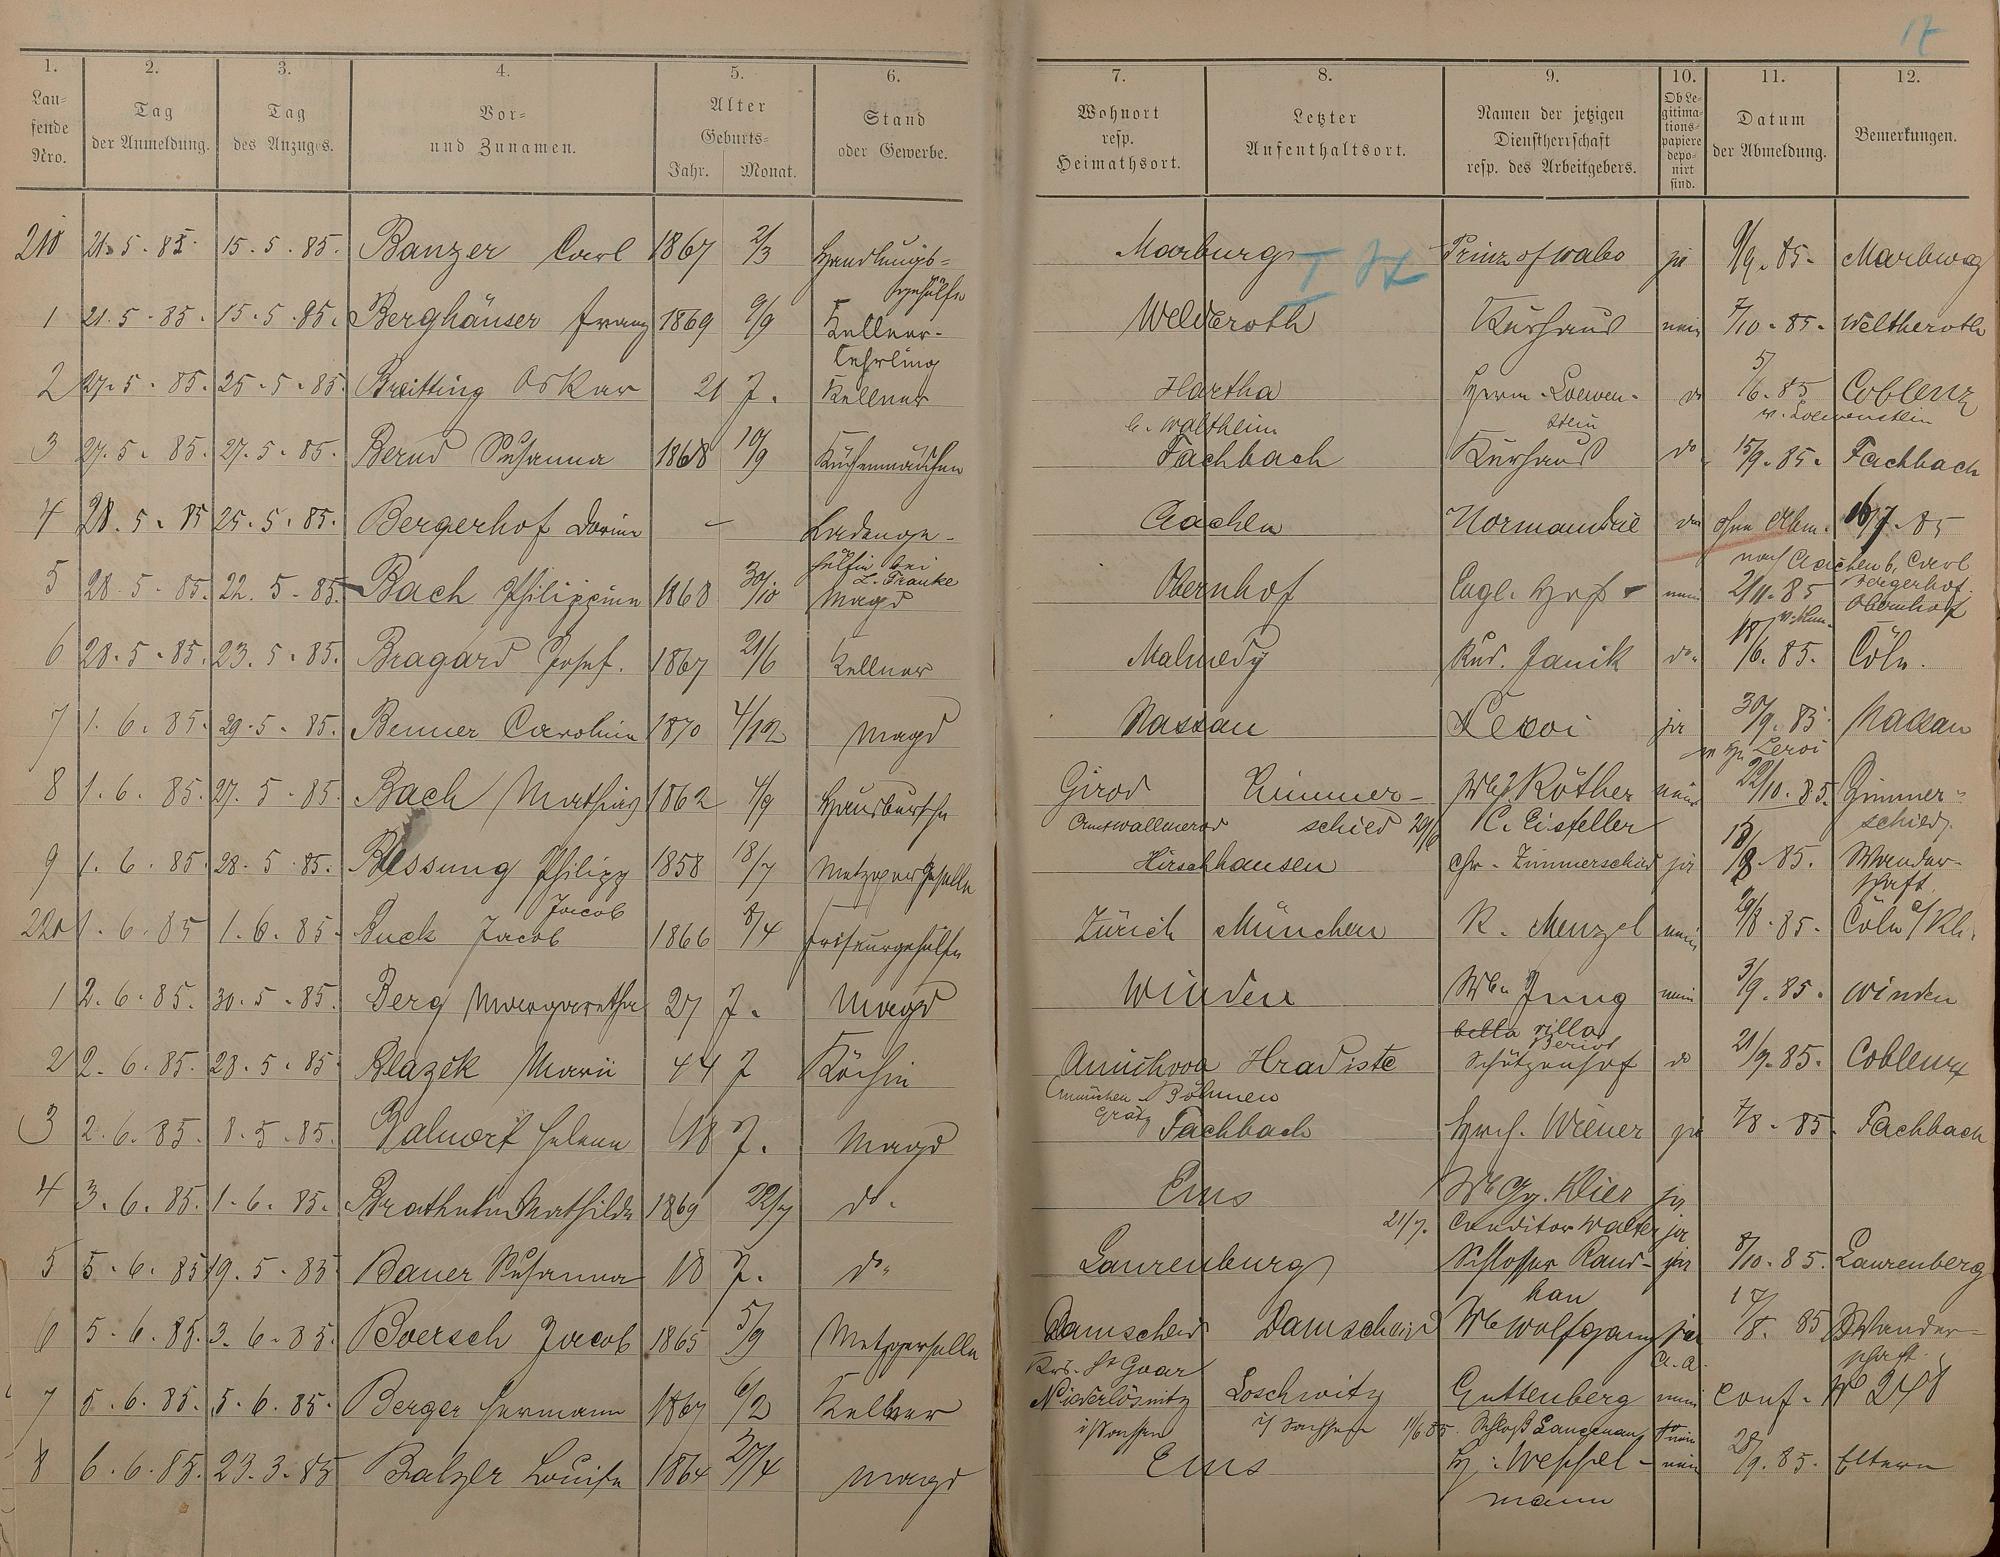 17
1. 2. 3. 4. 5. 6. 7. 8. 9. 10. 11. 12.
Lau-
fende
Nro.
Tag
der Anmeldung.
Tag
des Anzuges.
Vor-
und Zunamen.
Alter
Geburts-
Jahr. Monat.
Stand
oder Gewerbe.
Wohnort
resp.
Heimathsort.
Letzter
Aufenthaltsort.
Namen der jetzigen
Dienstherrschaft
resp. des Arbeitgebers.
Ob Le-
gitima-
tions-
papiere
depo-
nirt
sind.
Datum
der Abmeldung.
Bemerkungen.
210 21. 5. 85. 15. 5. 85. Banzer Carl 1867 2/3 Handlungs- Marburg Prinz of wales ja 9/9. 85. Marburg
gehülfe
1 21. 5. 85. 15. 5. 85. Berghäuser Franz 1869 9/9 Kellner- Welderoth Kurhaus nein 7/10. 85. Weltheroth
Lehrling
2 27. 5. 85. 25. 5. 85. Breitting Oskar 21 J. Kellner Hartha Herm. Loewen- do 5/6. 85 Coblenz
b. Waltheim stein v. Loewenstein
3 27. 5. 85. 27. 5. 85. Bernd Susanna 1868 10/9 Küchenmädchen Fachbach Kurhaus do 15/9. 85. Fachbach
4 28. 5. 85 25. 5. 85. Bergerhof - Ladenge- Aachen Normandie do ohne Abm. 16/7. 85
hülfin bei nach Aachen b. Carl
L. Franke Bergerhof.
5 28. 5. 85. 22. 5. 85. Bach Philippine 1868 30/10 Magd Obernhof Engl. Hof nein 2/11. 85 Obernhof
6 28. 5. 85. 23. 5. 85. Bragard Josef. 1867 21/6 Kellner Malmedy Rud. Janik do. 18/6. 85. Cöln.
7 1. 6. 85. 29. 5. 85. Benner Caroline 1870 4/12 Magd Nassau Leroi ja 30/9. 85. Nassau
Leroi
8 1. 6. 85. 27. 5. 85. Bach Mathias 1862 4/9 Hausbursche Girod Zimmer- Röther nein 22/10. 85. Zimmer-
Amt Wallmerod schied C. Eisfeller schied.
9 1. 6. 85. 28. 5. 85. Bessung Philipp 1858 18/7 Metzgergeselle Hirschhausen Chr. Zimmerschied ja 85. Wander-
schaft.
Jacob
220 1. 6. 85 1. 6. 85. Buck Jacob 1866 8/4 Friseurgehülfe Zürich München R. Menzel nein 29/8. 85. Cöln a/Rh.
1 2. 6. 85. 30. 5. 85. Berg Margaretha 27 J. Magd Winden Wbe. Jung nein 3/9. 85. Winden
bella villa
2 2. 6. 85. 28. 5. 85. Blazek Marie 44 J Köchin Hradiste Schützenhof do 21/9. 85. Coblenz
Böhmen
3 2. 6. 85. 8. 5. 85. Helene 18 J. Magd Fachbach Wiener ja 7/8. 85. Fachbach
4 3. 6. 85. 1. 6. 85. Mathilde 1869 22/7 do. Ems We Gg. Klier ja
21/7. Conditor Walter ja
5 5. 6. 85 19. 5. 85 Bauer Susanna 18 J. do. Laurenburg Schlosser Kauf- ja 8/10. 85. Laurenberg
6 5. 6. 85. 3. 6. 85. Boersch Jacob 1865 5/9 Metzgerselle Damscheid Damscheid We Wolfgang ja 17/8. 85 Wander-
Krs. St Goar schaft.
7 5. 6. 85. 5. 6. 85. Berger Hermann 1867 6/2 Kellner Niederlösnitz Loschwitz Guttenberg nein conf. No 248
i/Sachsen i/Sachsen 11/6 85. Schloß Langenau nein
8 6. 6. 85. 23. 3. 85 Balzer Louise 1864 27/4 Magd Ems H. Weffel- nein 28/9. 85. Eltern
mann